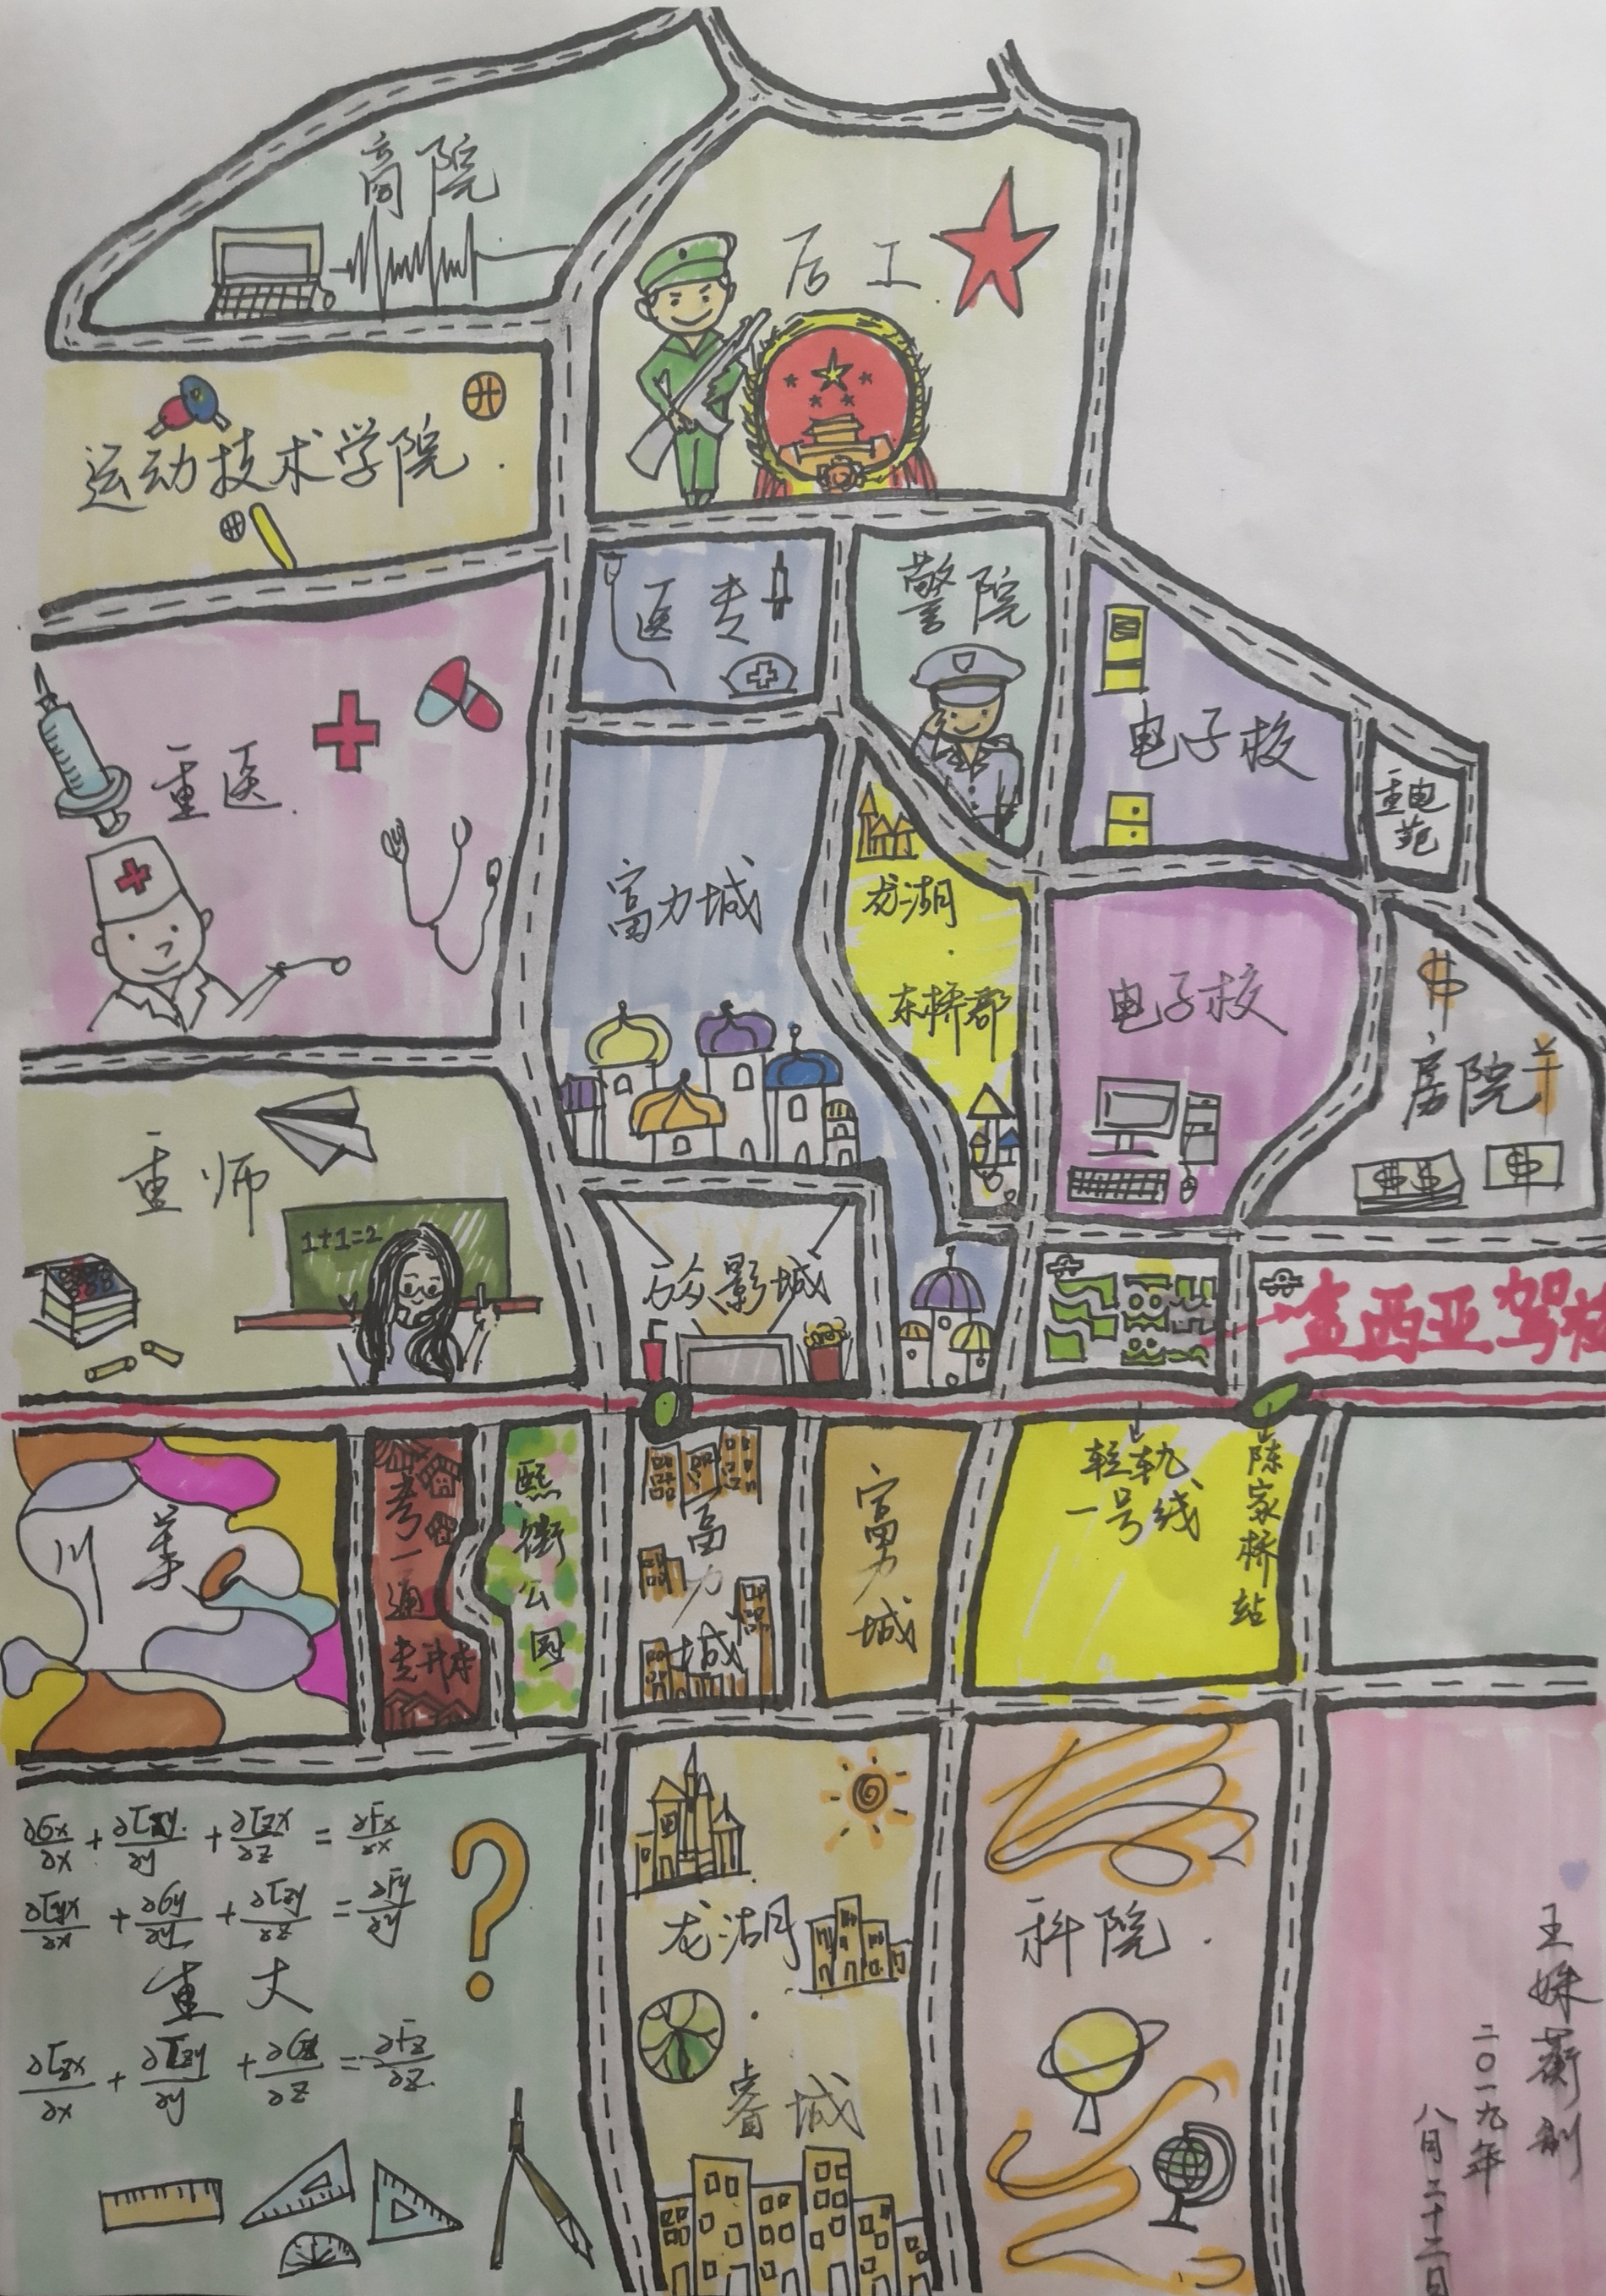 商院
后工
运动技术学院
医专
警院
重医
电子校
重电
苑
富力城
龙湖
东桥郡
电子校
房院
重师
1+1=2
影城
盍西亚驾校
川美
考一通
专升本
熙街公园
富力城
富力城
轻轨
一号线
陈家桥站
∂σx/∂x + ∂τxy/∂y + ∂τzx/∂z = ∂Fx/∂x
∂τyx/∂x + ∂σy/∂y + ∂τzy/∂z = ∂Fy/∂y
重大
∂τzx/∂x + ∂τzy/∂y + ∂σz/∂z = ∂Fz/∂z
龙湖
睿城
科院
王姝蘅制
二〇一九年
八月二十二日